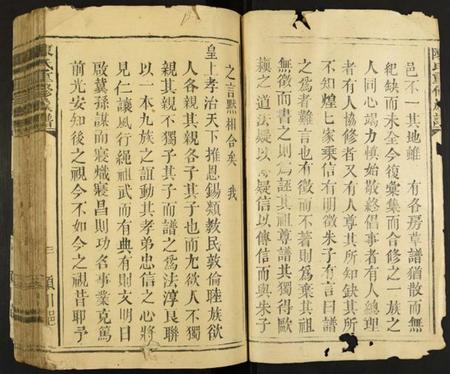 邑不一其地雖　有各房草譜猶散而無
紀缺而未全今復彙集而合修之一族之
人同心竭力慎始敬終倡事者有人總理
者有人協修者又有人尊其所知缺其所
不知煌煌家乘信有明徵朱子有言曰譜
之為者難言也有徵而不著則為棄其祖
無徵而書之則為誣其祖尊譜其獨得歐
蘇之道法疑以傳疑信以傳信而與朱子
之言黙相合矣　我
皇上孝治天下推恩錫類教民敦倫睦族欲
人各親其親各子其子也而尤欲人不獨
親其親不獨子其子而譜之為法淳良聯
以一本九族之誼動其孝弟忠信之心將
見仁讓風行繩祖武而有典有則文明日
啟冀孫謀而寖熾寖昌則功名事業克篤
前光安知後之視今不如今之視昔耶予
陳氏重修族譜
潁川郡